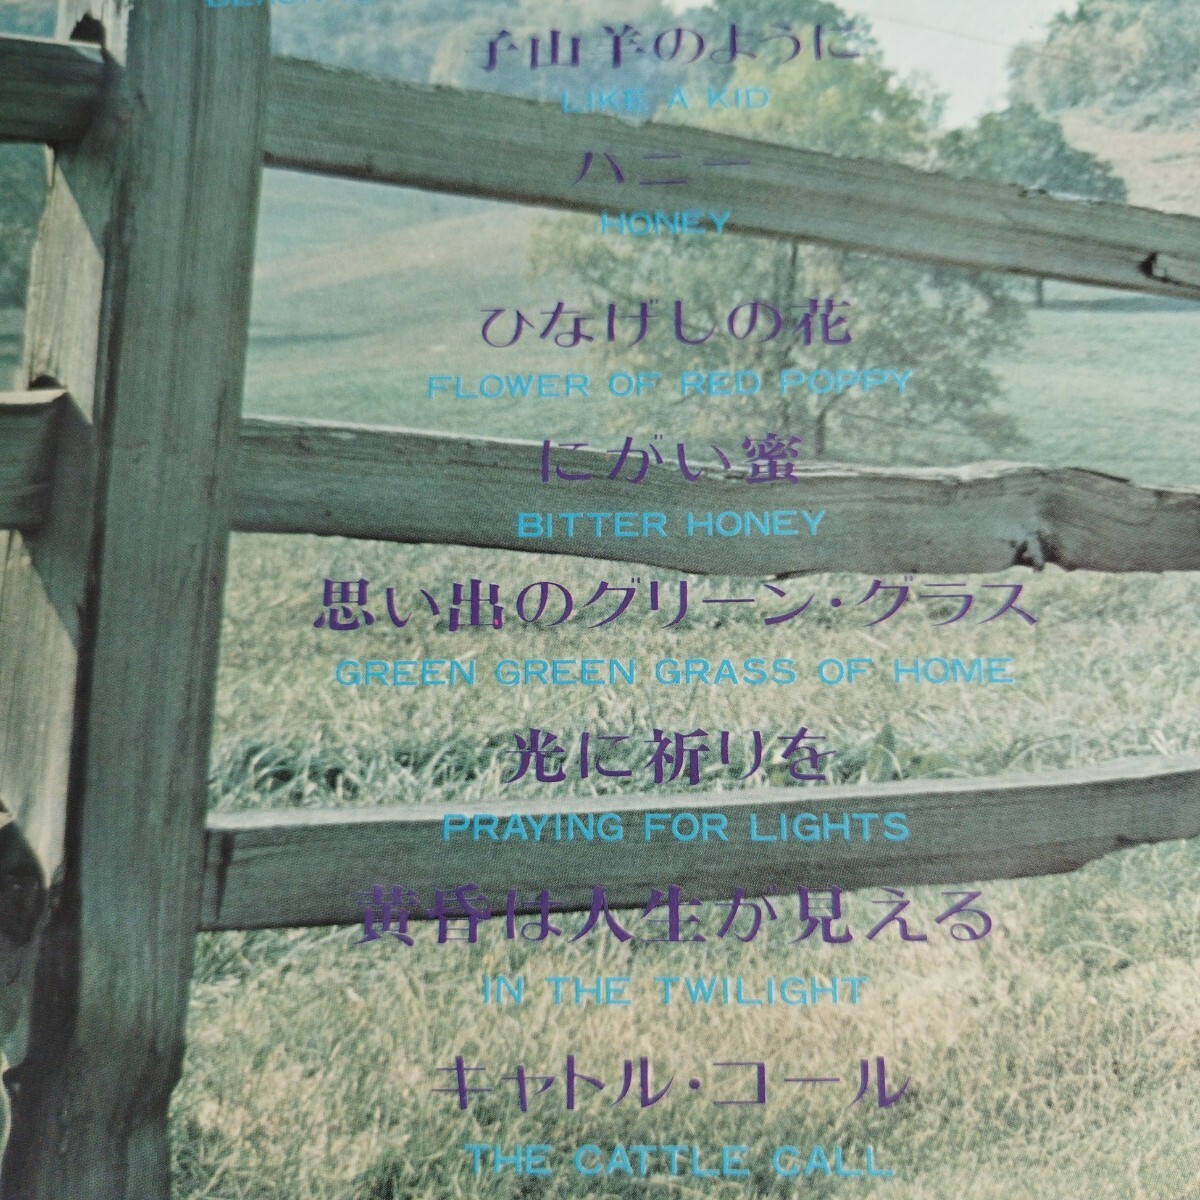 子山羊のように
LIKE A KID
ハニー
HONEY
ひなげしの花
FLOWER OF RED POPPY
にがい蜜
BITTER HONEY
思い出のグリーン・グラス
GREEN GREEN GRASS OF HOME
光に祈りを
PRAYING FOR LIGHTS
黄昏は人生が見える
IN THE TWILIGHT
キャトル・コール
THE CATTLE CALL